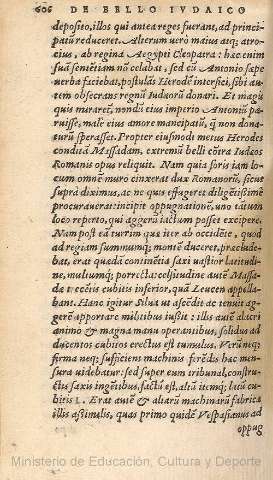 606 DE BELLO IVDAICO
deposito, illos qui antea reges fuerant, ad princi-
patū reduceret. Alterum uero maius atq; atro-
cius, ab regina Aegypti Cleopatra: hæc enim
suā sentētiam nō celabat, sed cū Antonio sæpe
uerba faciebat, postulās Herodē interfici, sibi au-
tem obsecrans regnū Iudæorū donari. Et magis
quis miraret, nondū eius imperio Antoniū pa-
ruisse, malè eius amore mancipatū, q̄ non dona-
turū sperasset. Propter eiusmodi metus Herodes
conditā Massadam, extremū belli cōtra Iudæos
Romanis opus reliquit. Nam quia foris iam lo-
cum omnē muro cinxerat dux Romanorū, sicut
suprà diximus, ac ne quis effugeret diligētissimè
procurauerat: incipit oppugnationē, uno tātum
loco reperto, qui aggerū iactum posset excipere.
Nam post eā turrim quæ iter ab occidēte, quod
ad regiam summumq; montē duceret, præclude-
bat, erat quædā continētia saxi uastior latitudi-
ne, multumq; porrecta: celsitudine autē Massa-
dæ trecētis cubitis inferior, quā Leucen appella-
bant. Hanc igitur Silua ut ascēdit ac tenuit ag-
gerē apportare militibus iussit: illis autē alacri
animo & magna manu operantibus, solidus ad
ducentos cubitos erectus est tumulus. Verū neq;
firma neq; sufficiens machinis ferēdis hæc men-
sura uidebatur: sed super eum tribunal, constru-
ctū saxis ingētibus, factū est, altū itemq; latū cu-
bitis L. Erat autē & aliarū machinarū fabrica
illis assimilis, quas primo quidē Vespasianus ad
oppug
Ministerio de Educación, Cultura y Deporte